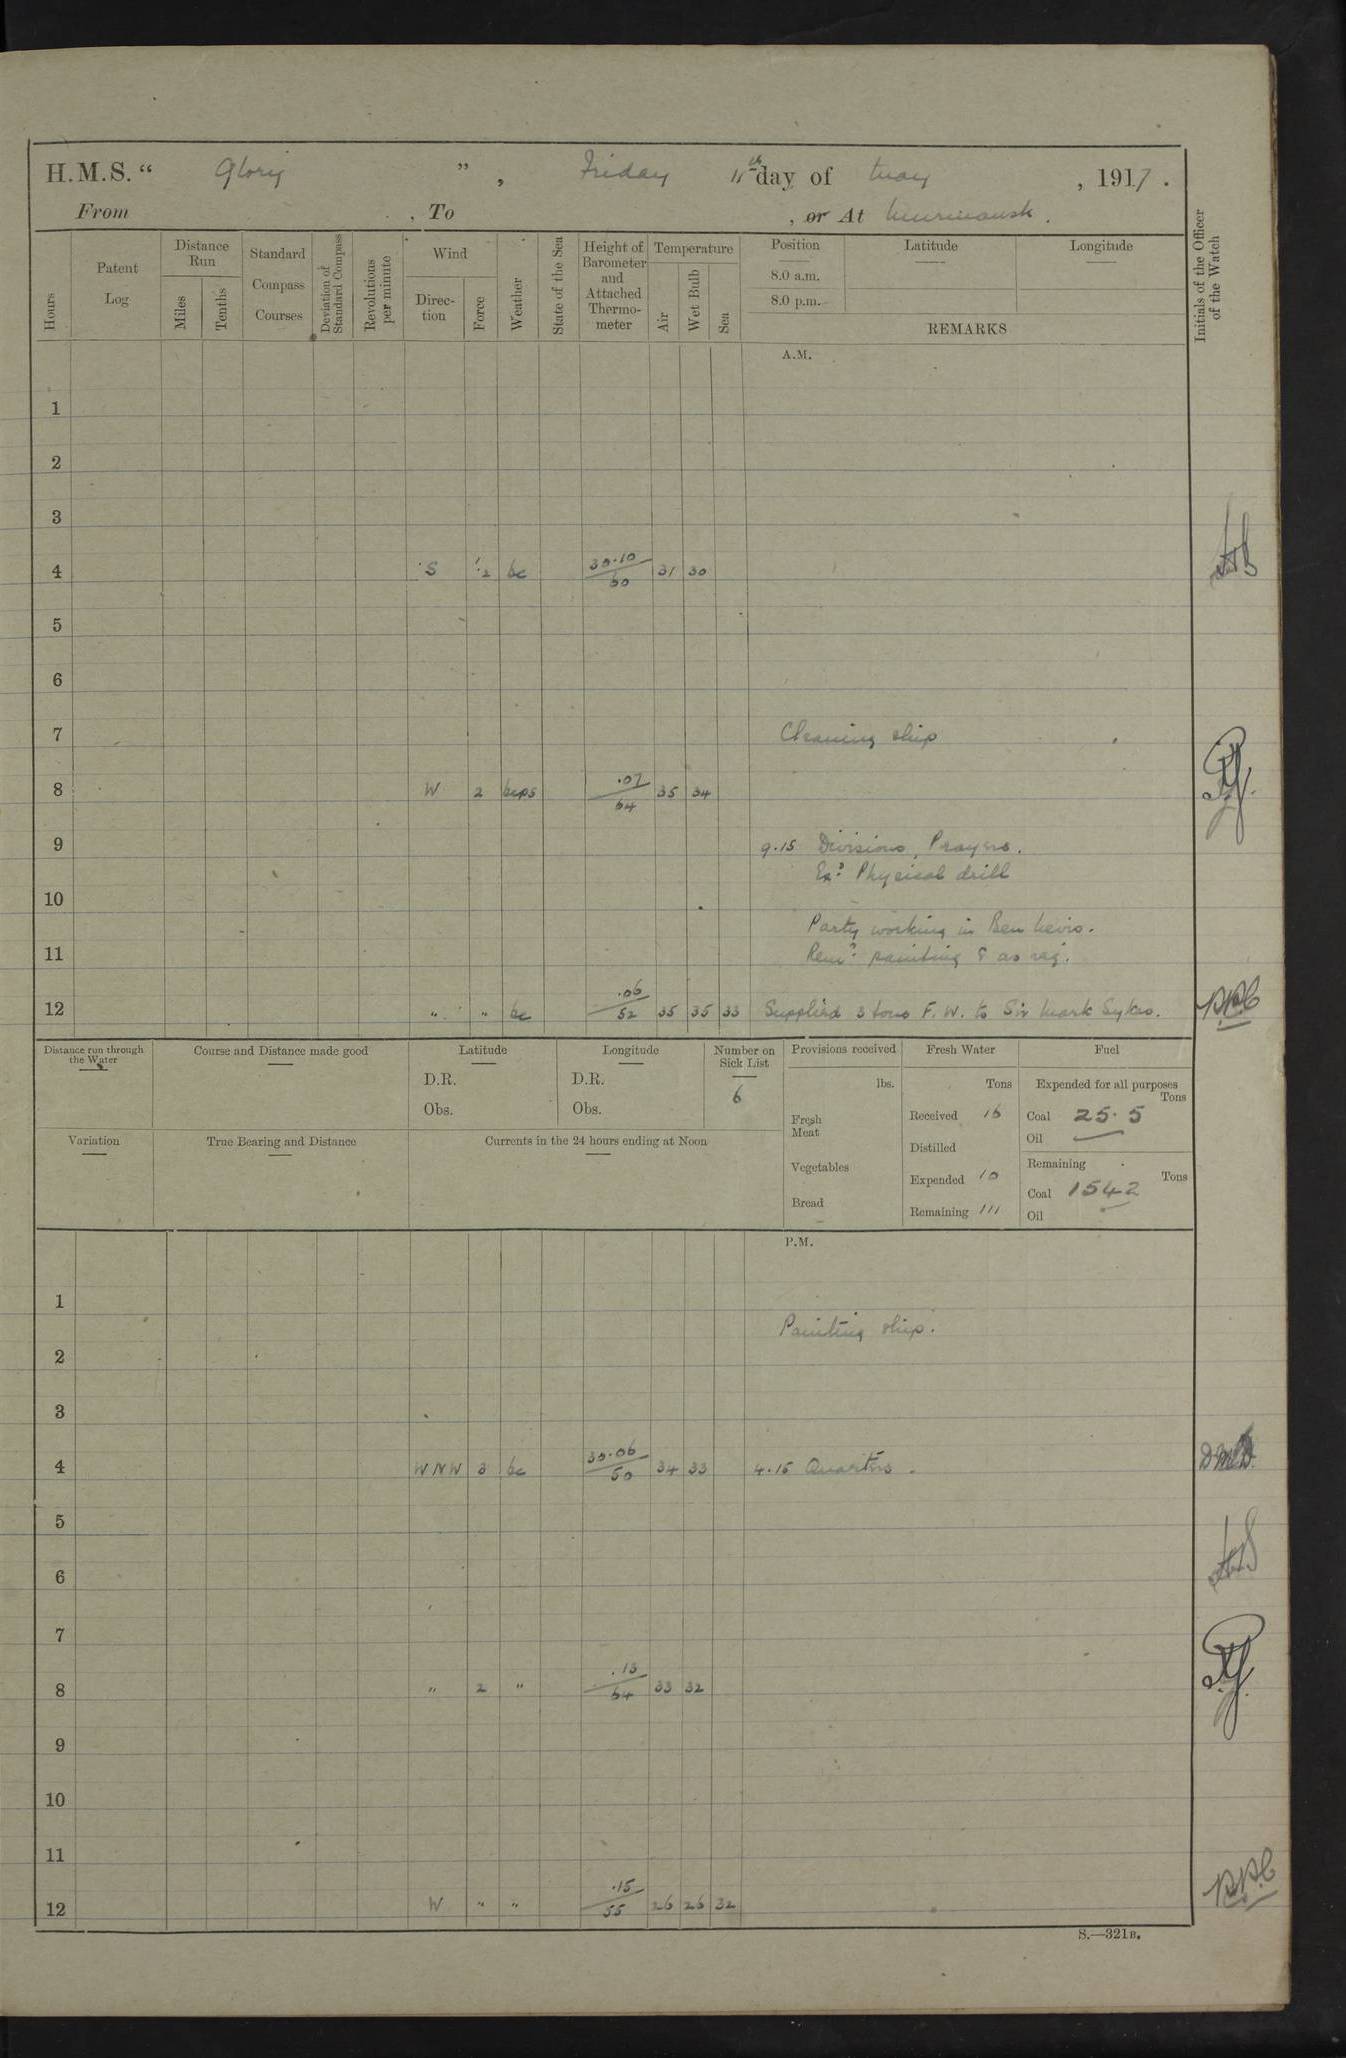 H.M.S. “ Glory ” , Friday 11th day of May , 1917 .
From , To , or At Murmansk .
Hours
Patent Log
Distance Run
Miles
Tenths
Standard Compass Courses
Deviation of Standard Compass
Revolutions per minute
Wind
Direc-tion
Force
Weather
State of the Sea
Height of Barometer and Attached Thermo-meter
Temperature
Air
Wet Bulb
Sea
Position
8.0 a.m.
8.0 p.m.
Latitude
Longitude
REMARKS
Initials of the Officer of the Watch
A.M.
1
2
3
4 S 1.2 bc 30.10/60 31 30
5
6
7 Cleaning ship
8 W 2 bcps .07/64 35 34
9 9.15 Divisions, Prayers.
Exd Physical drill
10
Party working in Ben Nevis.
11 Remdr painting & as req.
12 " " bc .06/52 35 35 33 Supplied 3 tons F.W. to Sir Mark Sykes.
Distance run through the Water
Course and Distance made good
Latitude
D.R.
Obs.
Longitude
D.R.
Obs.
Number on Sick List
6
Provisions received
lbs.
Fresh Meat
Vegetables
Bread
Fresh Water
Tons
Received 16
Distilled
Expended 10
Remaining 111
Fuel
Expended for all purposes
Tons
Coal 25.5
Oil —
Remaining
Tons
Coal 1542
Oil
Variation
True Bearing and Distance
Currents in the 24 hours ending at Noon
P.M.
1
Painting ship.
2
3
4 WNW 3 bc 30.06/50 34 33 4.15 Quarters.
5
6
7
8 " 2 " .13/64 33 32
9
10
11
12 W " " .15/55 26 26 32
S.—321B.